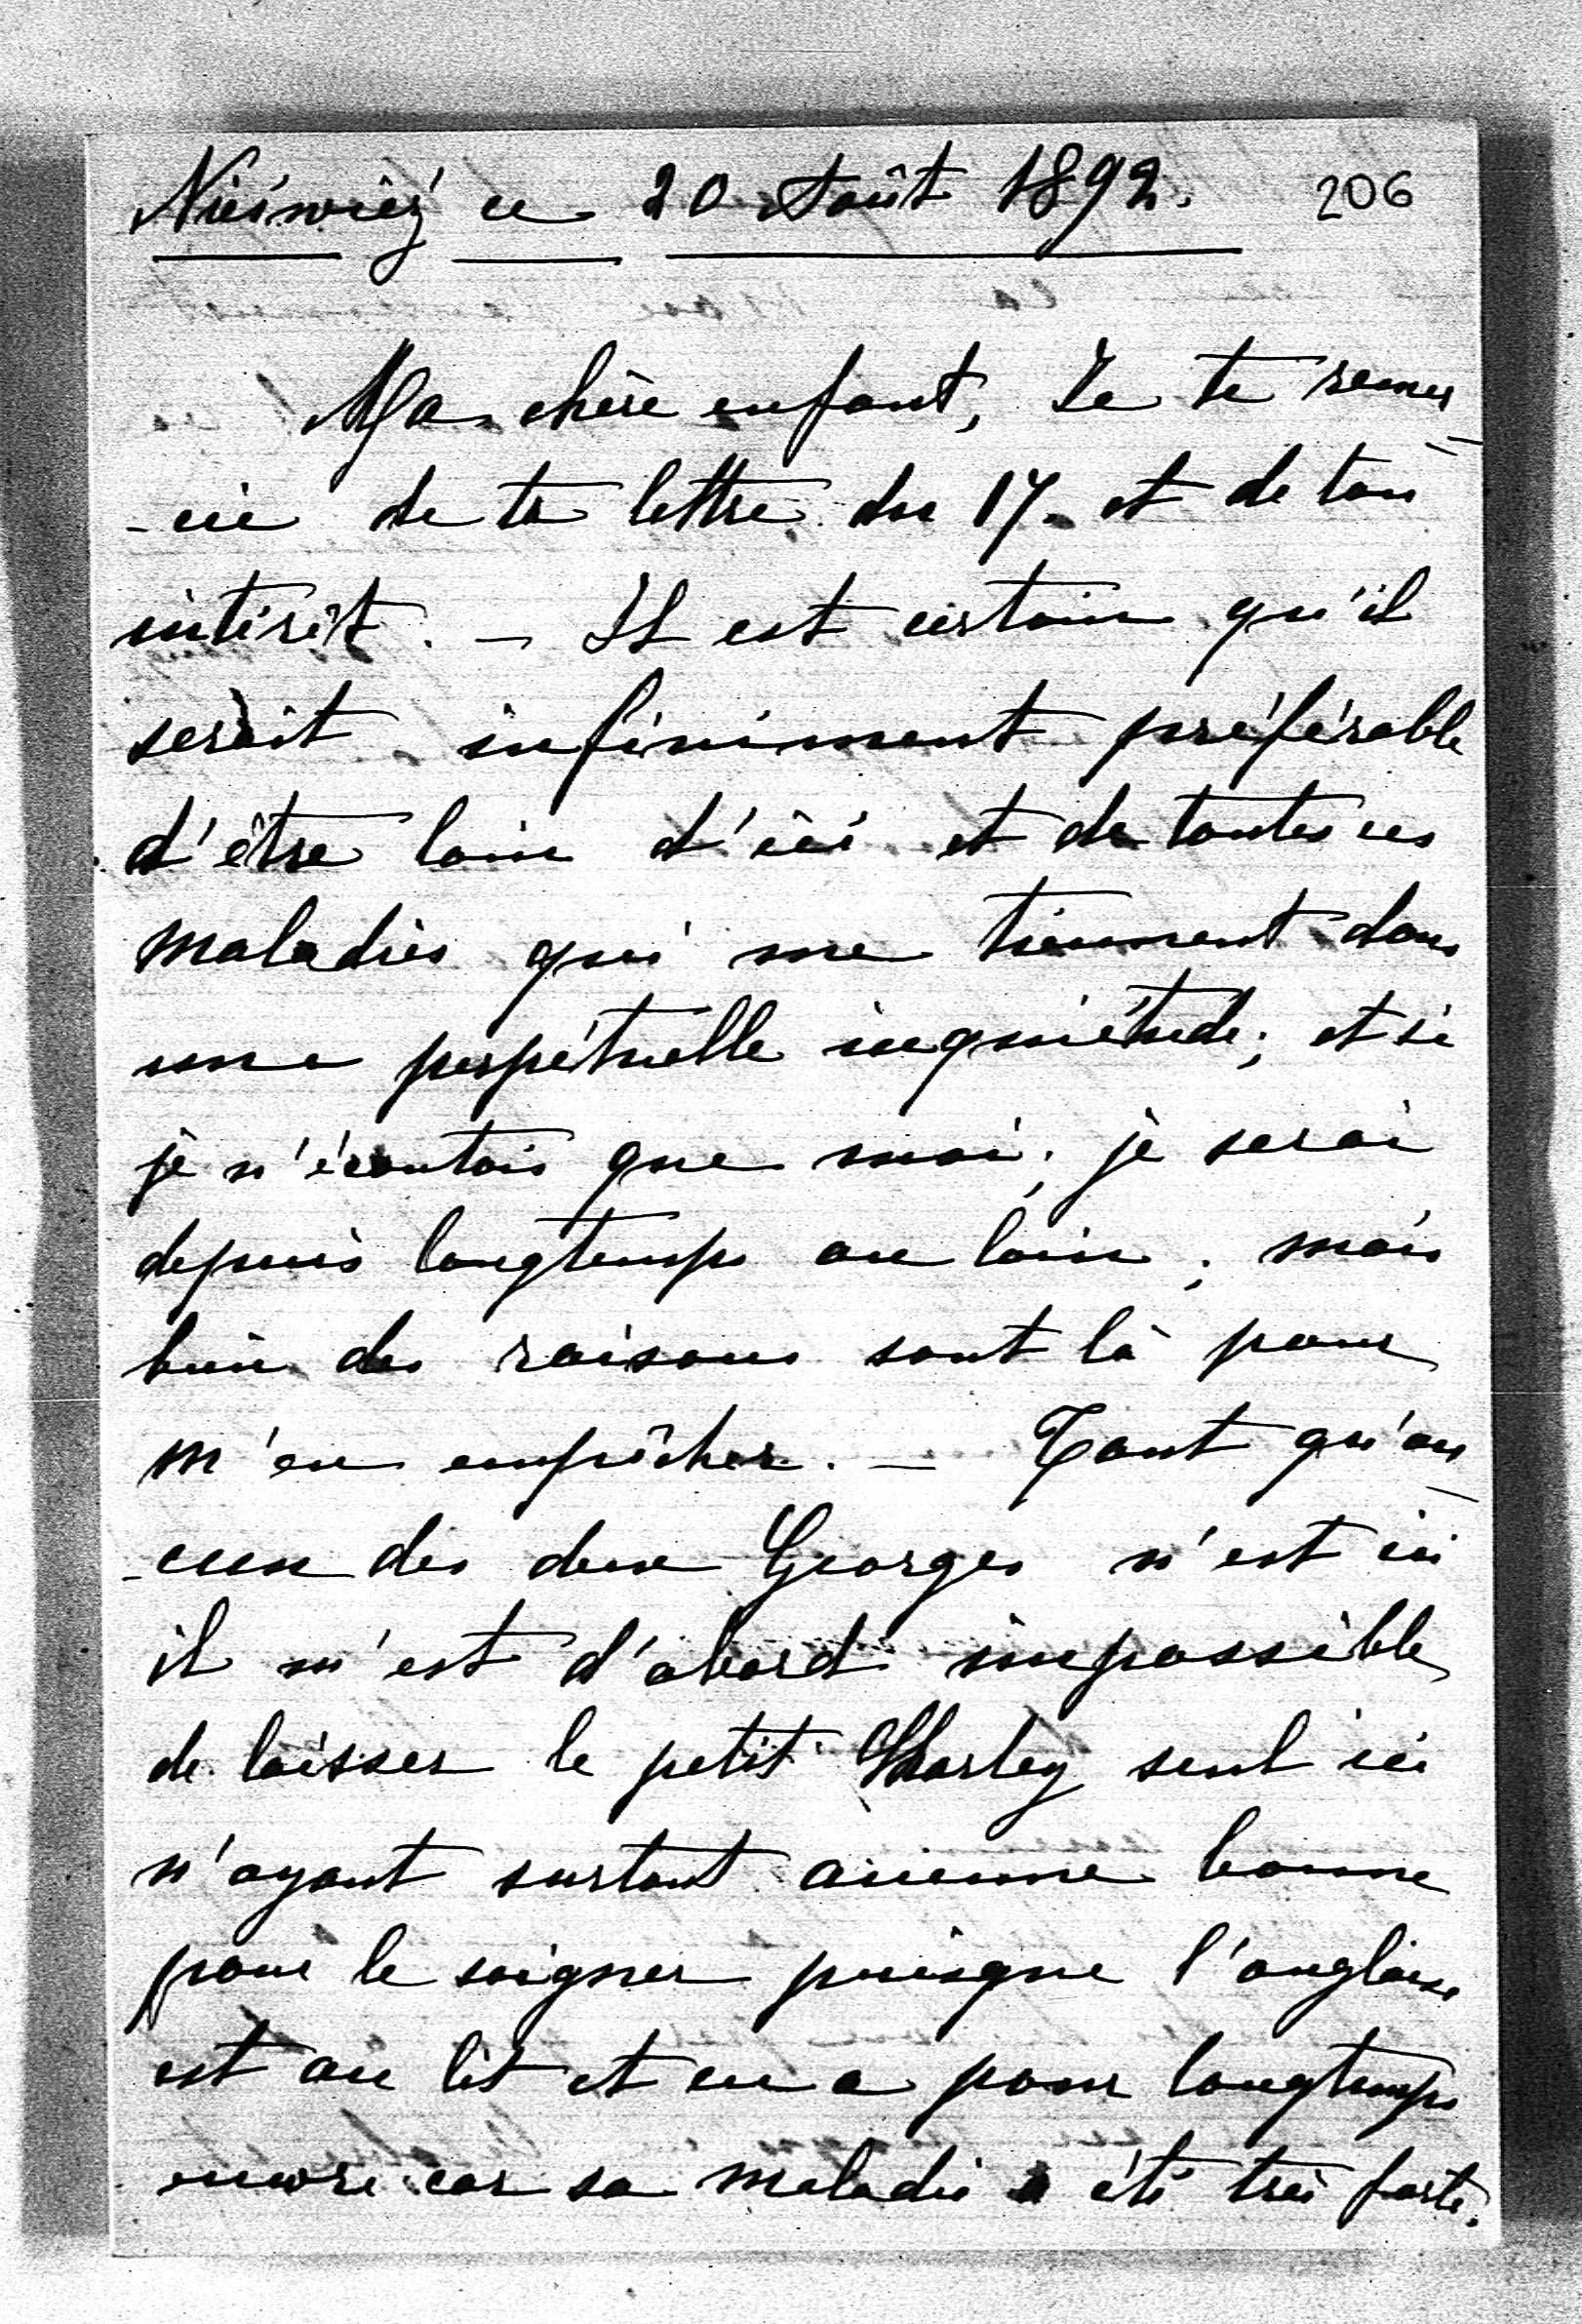 Nieśwież ce 20 Août 1892. 206
Ma chère enfant, Je te remer-
-cie de ta lettre du 17. et de ton
intérêt. — Il est certain qu'il
serait infiniment préférable
d'être loin d'ici et de toutes ces
maladies qui me tiennent dans
une perpétuelle inquiétude; et si
je n'écoutais que moi, je serai
depuis longtemps au loin; mais
bien des raisons sont là pour
m'en empêcher. — Tant qu'au-
-cun des deux Georges n'est ici
il m'est d'abord impossible
de laisser le petit Charley seul ici
n'ayant surtout aucune bonne
pour le soigner puisque l'anglaise
est au lit et en a pour longtemps
encore car sa maladie a été très forte.